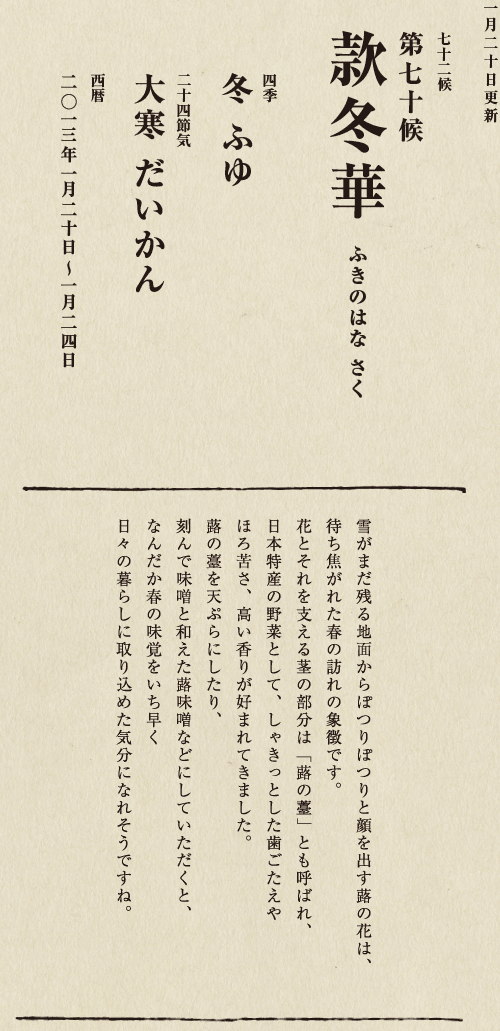 一月二十日更新
七十二候
第七十候
款冬華 ふきのはな さく
四季
冬 ふゆ
二十四節気
大寒 だいかん
西暦
二〇一三年一月二十日〜一月二四日
雪がまだ残る地面からぽつりぽつりと顔を出す蕗の花は、
待ち焦がれた春の訪れの象徴です。
花とそれを支える茎の部分は「蕗の薹」とも呼ばれ、
日本特産の野菜として、しゃきっとした歯ごたえや
ほろ苦さ、高い香りが好まれてきました。
蕗の薹を天ぷらにしたり、
刻んで味噌と和えた蕗味噌などにしていただくと、
なんだか春の味覚をいち早く
日々の暮らしに取り込めた気分になれそうですね。